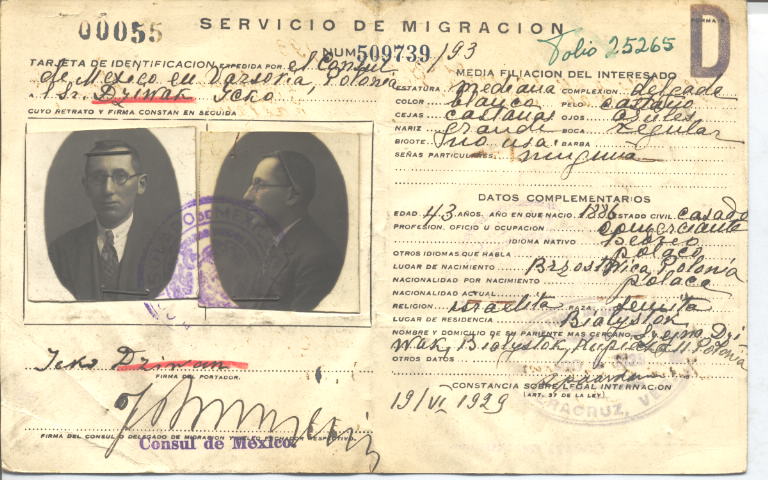 00055
SERVICIO DE MIGRACION
NUM 509739/93
Folio 25265
FORMATO
D
TARJETA DE IDENTIFICACION EXPEDIDA POR el Consul
de Mexico en Varsovia, Polonia
A Sr. Dziwak Icko
CUYO RETRATO Y FIRMA CONSTAN EN SEGUIDA
Icko Dziwak
FIRMA DEL PORTADOR.
FIRMA DEL CONSUL O DELEGADO DE MIGRACION Y SELLO FECHADOR RESPECTIVO.
Consul de México.
MEDIA FILIACION DEL INTERESADO
ESTATURA mediana COMPLEXION delgada
COLOR blanco PELO castaño
CEJAS castañas OJOS azules
NARIZ grande BOCA regular
BIGOTE no usa BARBA
SEÑAS PARTICULARES ninguna
DATOS COMPLEMENTARIOS
EDAD 43 AÑOS, AÑO EN QUE NACIO 1886 ESTADO CIVIL casado
PROFESION, OFICIO U OCUPACION comerciante
IDIOMA NATIVO
OTROS IDIOMAS QUE HABLA polaco
LUGAR DE NACIMIENTO Polonia
NACIONALIDAD POR NACIMIENTO polaca
NACIONALIDAD ACTUAL
RELIGION israelita RAZA semita
LUGAR DE RESIDENCIA Bialystok
NOMBRE Y DOMICILIO DE SU PARIENTE MAS CERCANO Dzi
wak, Bialystok, 11, Polonia
OTROS DATOS
CONSTANCIA SOBRE LEGAL INTERNACION
(ART. 37 DE LA LEY)
19/VI 1929
VERACRUZ, VER.